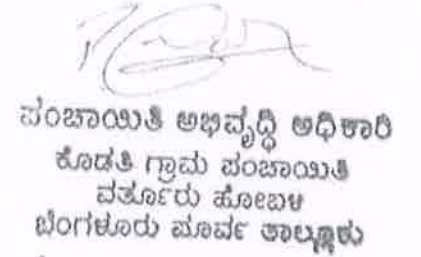 ಪಂಚಾಯಿತಿ ಅಭಿವೃದ್ಧಿ ಅಧಿಕಾರಿ
ಕೊಡತಿ ಗ್ರಾಮ ಪಂಚಾಯಿತಿ
ವರ್ತೂರು ಹೋಬಳಿ
ಬೆಂಗಳೂರು ಪೂರ್ವ ತಾಲ್ಲೂಕು